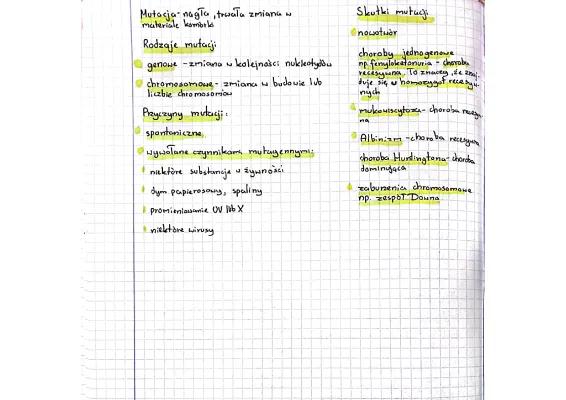 Mutacja - nagła, trwała zmiana w
materiale komórki
Rodzaje mutacji
genowe - zmiana w kolejności nukleotydów
chromosomowe - zmiana w budowie lub
liczbie chromosomów
Przyczyny mutacji:
spontaniczne
wywołane czynnikami mutagennymi:
niektóre substancje w żywności
dym papierosowy, spaliny
promieniowanie UV lub X
niektóre wirusy
Skutki mutacji
nowotwór
choroby jednogenowe
np. fenyloketonuria - choroba
recesywna. To znaczy, że znaj-
duje się w homozygot recesyw-
nych
mukowiscytoza - choroba recesyw-
na
Albinizm - choroba recesywna
choroba Huntingtona - choroba
dominująca
zaburzenia chromosomowe
np. zespół Downa